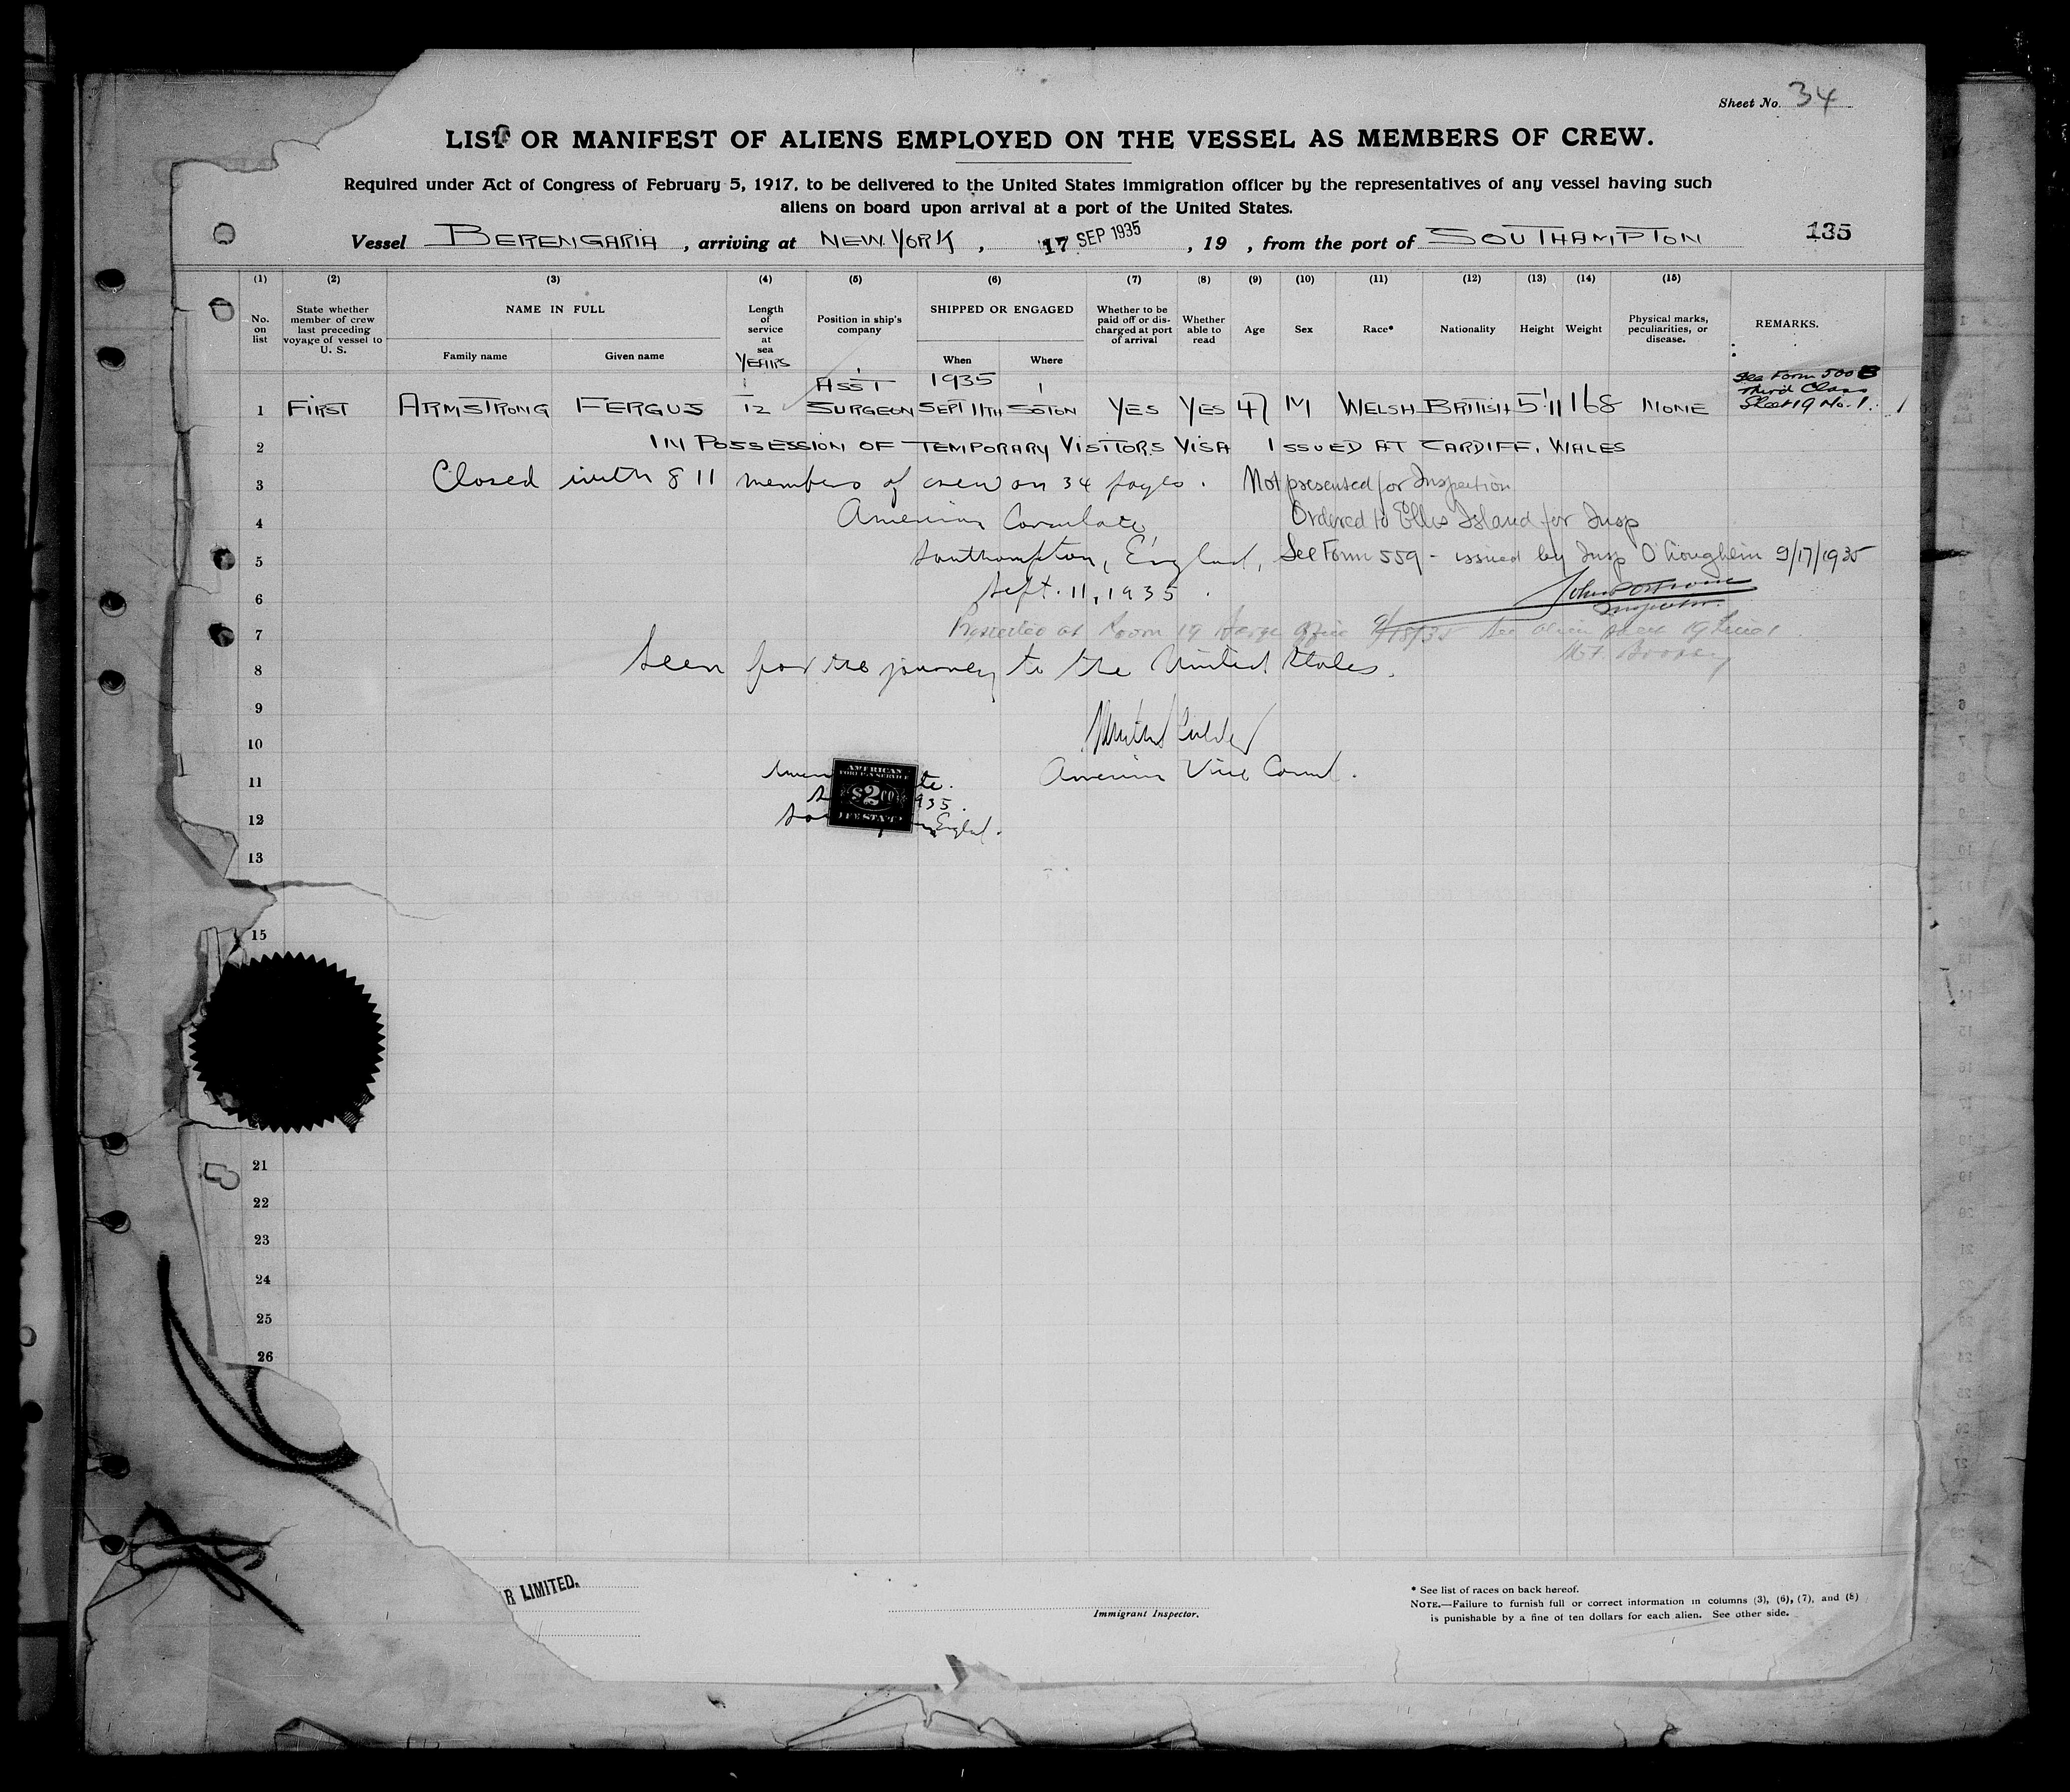 Sheet No. 34
LIST OR MANIFEST OF ALIENS EMPLOYED ON THE VESSEL AS MEMBERS OF CREW.
Required under Act of Congress of February 5, 1917, to be delivered to the United States immigration officer by the representatives of any vessel having such
aliens on board upon arrival at a port of the United States.
Vessel BERENGARIA, arriving at NEW YORK, 17 SEP 1935, 19 , from the port of SOUTHAMPTON 135
(1) (2) (3) (4) (5) (6) (7) (8) (9) (10) (11) (12) (13) (14) (15)
No. on list
State whether member of crew last preceding voyage of vessel to U. S.
NAME IN FULL
Family name Given name
Length of service at sea YEARS
Position in ship's company
SHIPPED OR ENGAGED
When Where
Whether to be paid off or discharged at port of arrival
Whether able to read
Age
Sex
Race*
Nationality
Height
Weight
Physical marks, peculiarities, or disease.
REMARKS.
ASS'T 1935 See Form 500 B
Third Class
1 FIRST ARMSTRONG FERGUS 12 SURGEON SEPT 11TH S'STON YES YES 47 M WELSH BRITISH 5'11 168 NONE Sheet 19 No. 1. 1
2 IN POSSESSION OF TEMPORARY VISITORS VISA ISSUED AT CARDIFF, WALES
3 Closed with 811 members of crew on 34 pages. Not presented for Inspection
4 American Consulate Ordered to Ellis Island for Insp
5 Southampton, England, See Form 559 - issued by Insp O'Loughlin 9/17/1935
6 Sept. 11, 1935. Inspector.
7 Presented at Room 19 Barge Office 9/18/35 See alien sheet 19 line 1
8 Seen for the journey to the United States.
9
10
11 American Vice Consul.
12
13
AMERICAN
FOREIGN SERVICE
$2.00
FEE STAMP
1935.
England.
15
21
22
23
24
25
26
R LIMITED.
Immigrant Inspector.
* See list of races on back hereof.
NOTE.—Failure to furnish full or correct information in columns (3), (6), (7), and (8)
is punishable by a fine of ten dollars for each alien. See other side.